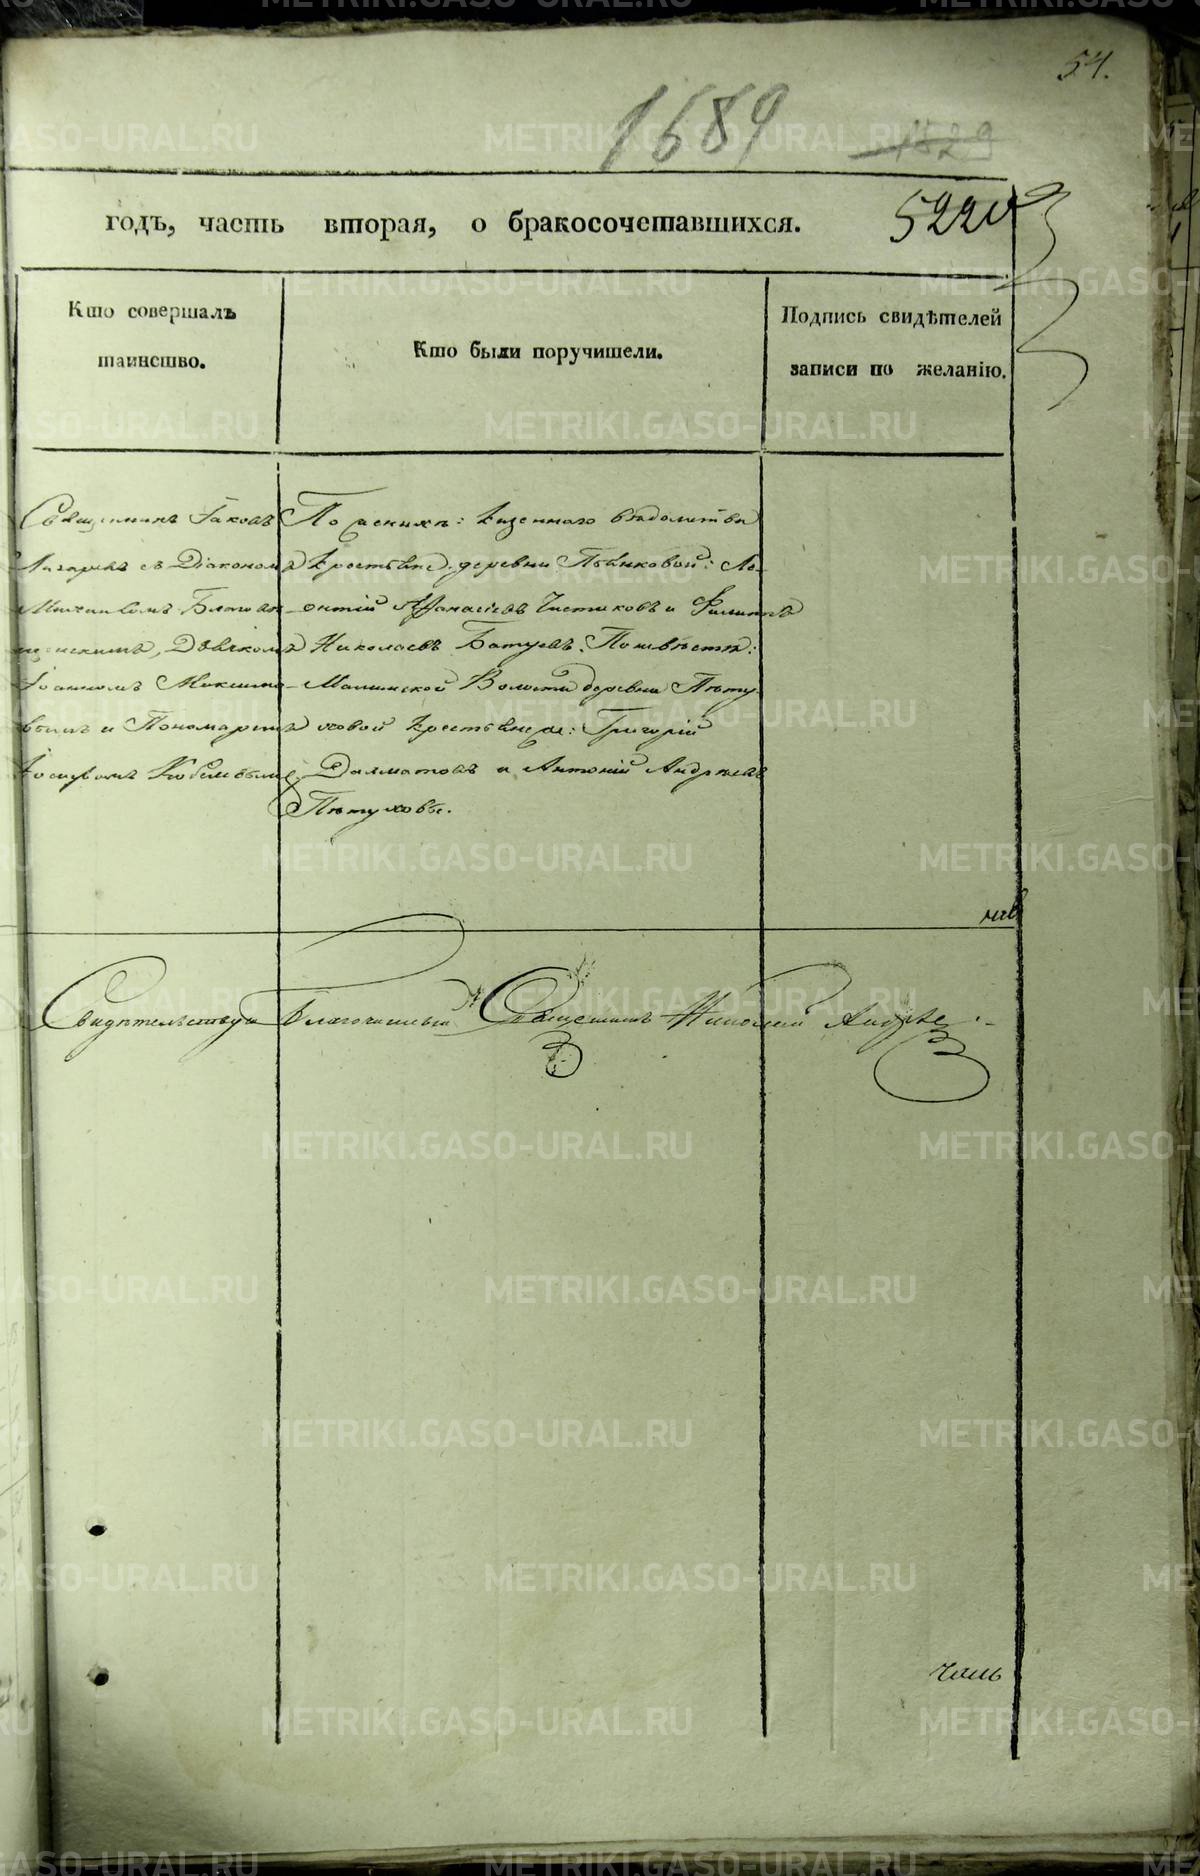 54.
1689 1529
годъ, часть вторая, о бракосочетавшихся. 522
Кто совершалъ таинство.
Кто были поручители.
Подпись свидѣтелей записи по желанію.
Священникъ Іаковъ
Лазаревъ съ Діакономъ
Благовѣ-
щенскимъ, Дьячкомъ
Іоанномъ Максимо-
вымъ и Пономаремъ
По женихѣ: Казеннаго вѣдомства
Крестьяне деревни Пѣнковой: Ле-
онтій Аѳанасіевъ Чистяковъ и Филиппъ
Николаевъ Батуевъ. По невѣстѣ:
Малинской Волости деревни Пѣту-
ховой Крестьяне: Григорій
Далматовъ и Антоній Андреевъ
Пѣтуховы.
Свидѣтельствую Благочинный Священникъ Николай
часть
METRIKI.GASO-URAL.RU